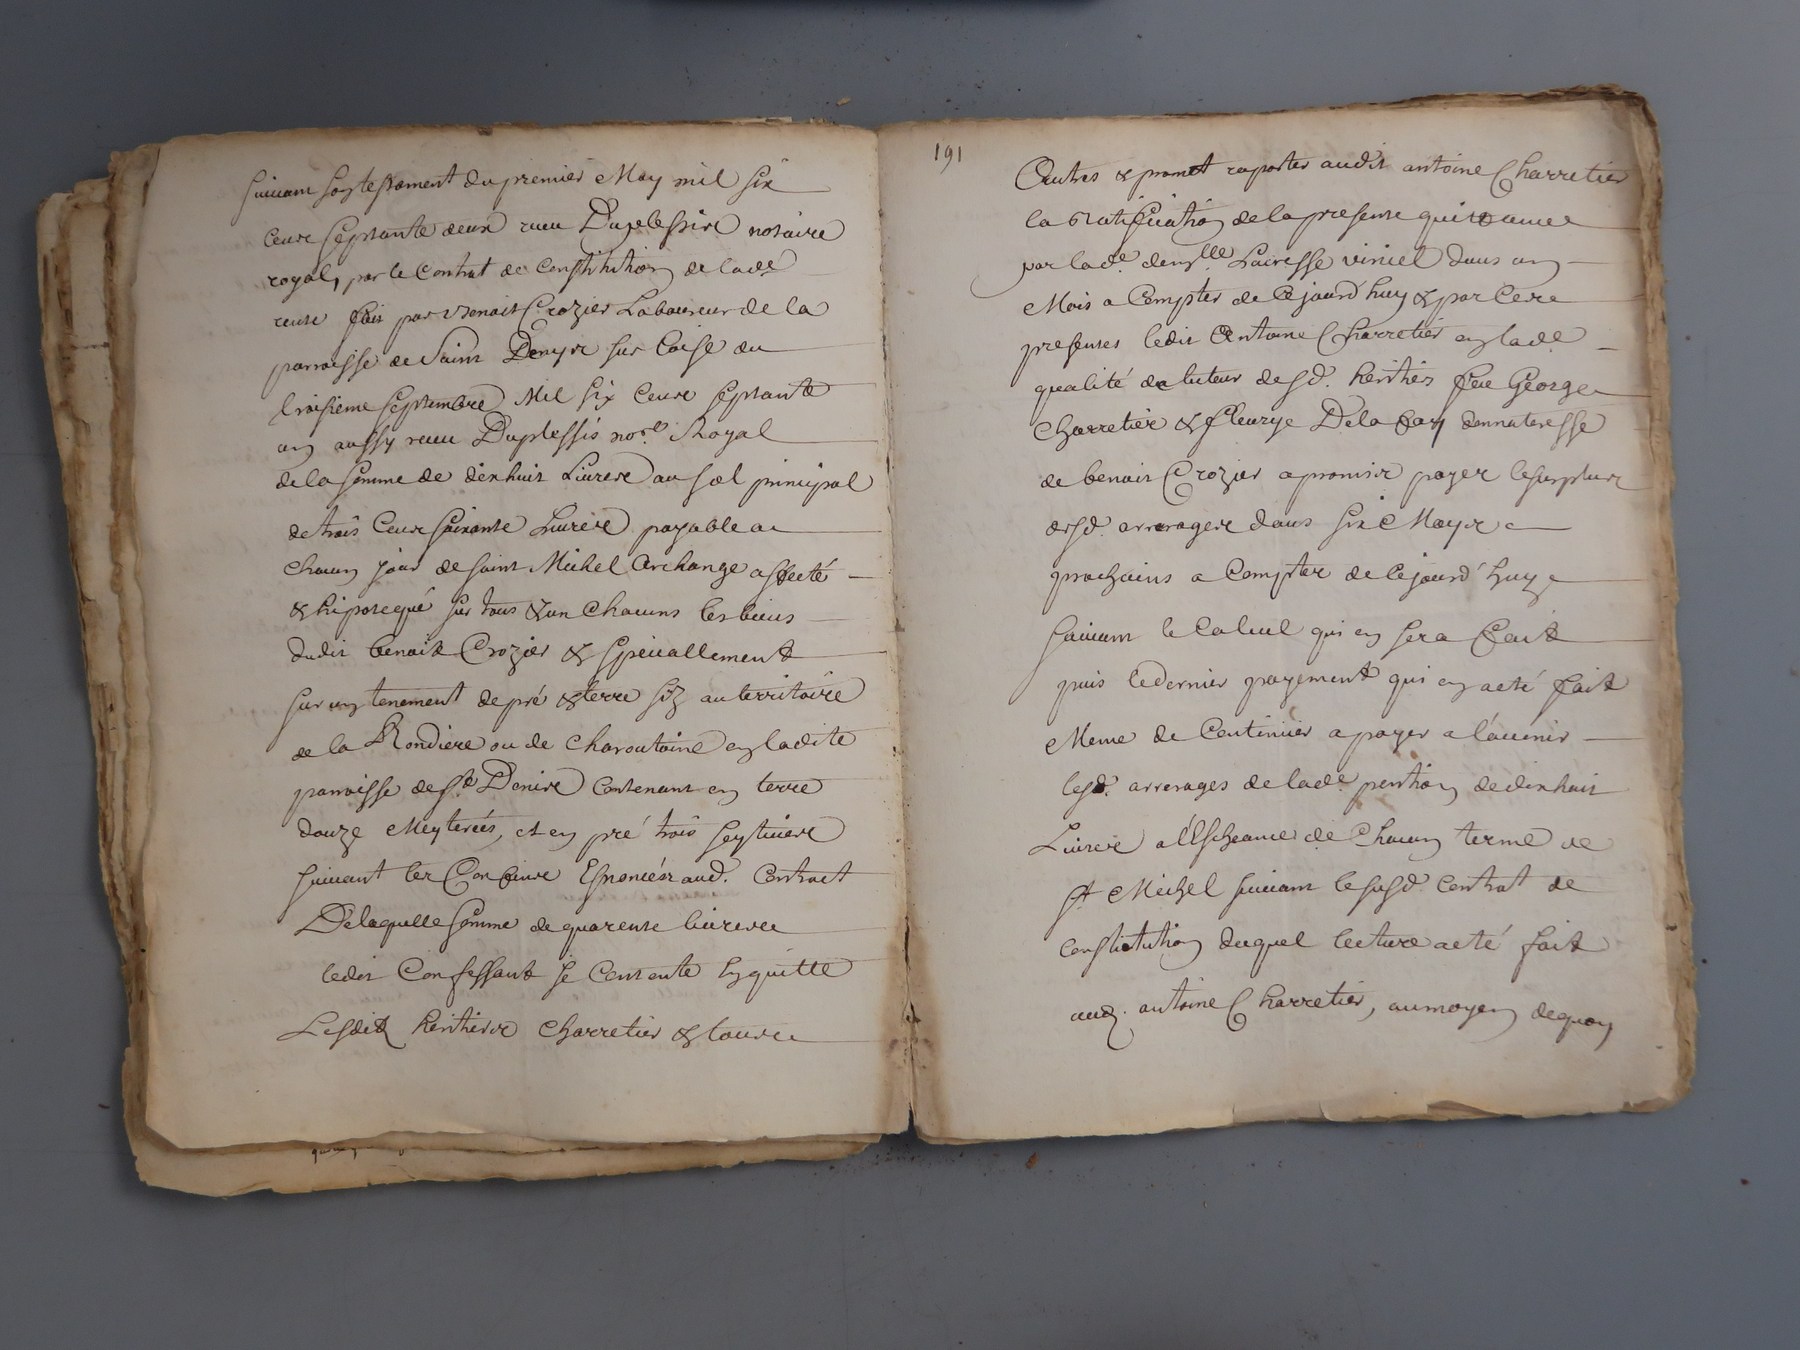 suivant son testament du premier May mil six
cens septante deux receu Duplessis notaire
royal, par le Contrat de Constitution de lade
rente fait par Benoit Crozier Laboureur de la
parroisse de Saint Denys sur Coise du
troisieme septembre Mil six cens septante
un aussy receu Duplessis nore. Royal
de la somme de dixhuit Livres au sol principal
de trois Cens soixante Livres payable a
Chacun jour de saint Michel Archange affecté
& hipotequé sur tous & un Chacuns les biens
dudit benoit Crozier & speciallement
sur un tenement de pré & terre siz au territoire
de la Rondiere ou de Charoutaine en ladite
parroisse de St Denis Contenant en terre
douze Meyterées, et en pré trois seytivées
suivant les Confins Enoncés aud. Contract
De laquelle somme de quarente livres
ledit Confessant se Contente en quitte
Lesdit heritiers Charretier & tous
191
Autres & promet raporter audit antoine Charretier
la Ratification de la presente quittance
par lade. demlle. Lucresse viniel dans un
Mois a Compter de Cejourd'huy & par Ces
presentes ledit Antoine Charretier en lade.
qualité de tuteur desd. heritiers feu George
Charretier & fleurye Delafay donnateresse
de benoit Crozier a promis payer le surplus
desd. arrerages dans six Moys
prochains a Compter de Cejourd'huy
suivant le Calcul qui en sera fait
puis le dernier payement qui en a eté fait
Meme de Continuer a payer a l'avenir
lesd. arrerages de lade. pention de dixhuit
Livres a l'Escheance de Chacun terme de
St Michel suivant le susd. Contrat de
Constitution duquel lecture a eté fait
aud. antoine Charretier, au moyen de quoy